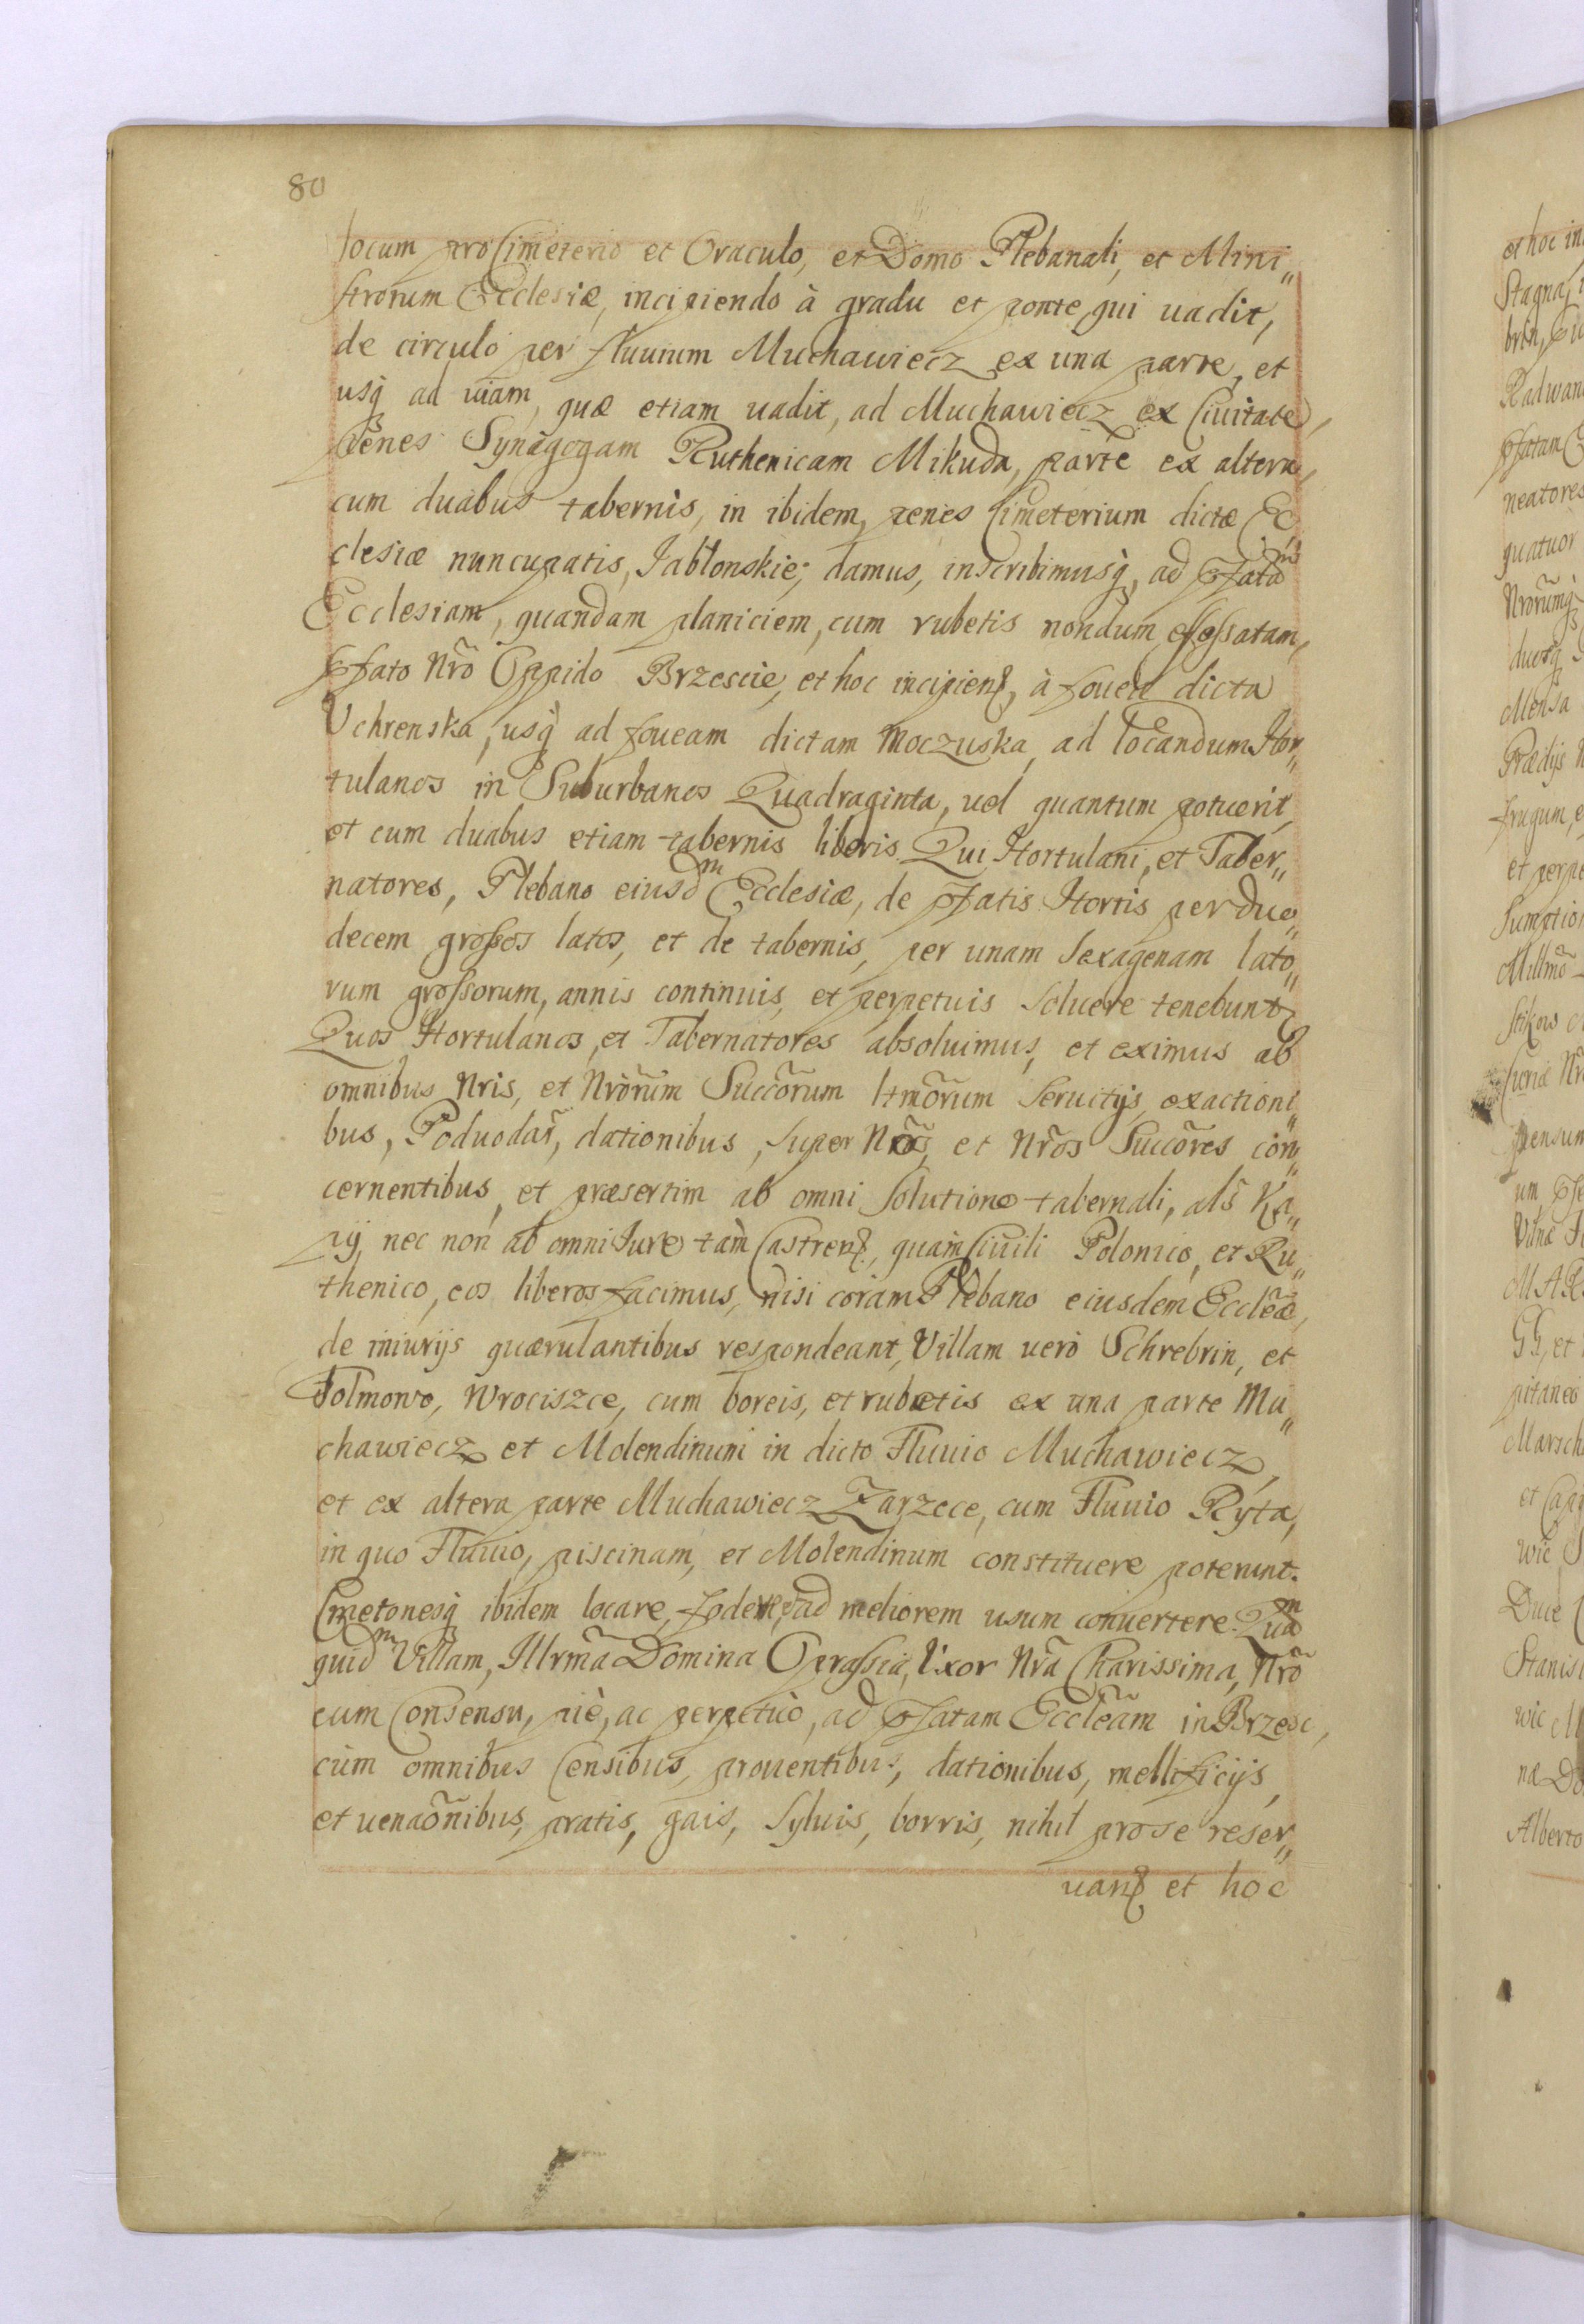 80
locum pro Cimeterio et Oraculo, et Domo Plebanali, et Mini„
strorum Ecclesiæ, incipiendo à gradu et ponte, qui uadit,
de circulo per fluuium Muchawiecz ex una parte, et
usq̀ ad uiam, quæ etiam uadit, ad Muchawiecz ex Ciuitate,
penes Synagogam Ruthenicam Mikuda, parte ex altera,
cum duabus tabernis, in ibidem, penes Cimeterium dictæ Ec„
clesiæ nuncupatis, Jabłonskie; damus, inscribimusq̀, ad pfatam
Ecclesiam, quandam planiciem, cum rubetis nondum effossatam,
pfato Nr̃o Oppido Brzescie, et hoc incipien, à fouea dicta
Vchrenska, usq̀ ad foueam dictam Moczuska, ad locandum Hor„
tulanos in Suburbanos Quadraginta, uel quantum potuerit,
et cum duabus etiam tabernis liberis. Qui Hortulani, et Taber„
natores, Plebano eiusdm Ecclesiæ, de pfatis Hortis per duo„
decem grossos latos, et de tabernis, per unam sexagenam lato„
rum grossorum, annis continuis, et perpetuis soluere tenebunt
Quos Hortulanos, et Tabernatores absoluimus, et eximus ab
omnibus Nris, et Nrõrum Succõrum ltmõrum seruitijs, exactioni„
bus, Poduodar̃, dationibus, super Nõs, et Nr̃os Succõres con„
cernentibus, et præsertim ab omni solutione tabernali, als̃ Ka„
pij, nec non ab omni Iure tàm Castren, quàm Ciuili Polonico, et Ru„
thenico, eos liberos facimus, nisi coram Plebano eiusdem Ecclẽæ,
de iniurijs quærulantibus respondeant, Villam uerò Schrebrin, et
Tolmowo, Wrociszce, cum boreis, et rubetis ex una parte Mu„
chawiecz et Molendinum in dicto Fluuio Muchawiecz,
et ex altera parte Muchawiecz Zarzece, cum Fluuio Ryta,
in quo Fluuio, piscinam, et Molendinum constituere poterunt.
Cmetonesq̀ ibidem locare, fodere, ad meliorem usum conuertere. Quãm
quidm Villam, Illrm̃a Domina Oprassia, Uxor Nr̃a Charissima, Nrõ
cum Consensu, piè, ac perpetuò, ad pfatam Ecclẽam in Brzesc,
cùm omnibus Censibus, prouentibus, dationibus, mellificijs,
et uenaõnibus, pratis, gais, syluis, borris, nihil pro se reser„
uan et hoc